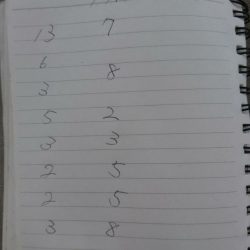 13 7
6 8
3
5 2
3 3
2 5
2 5
3 8